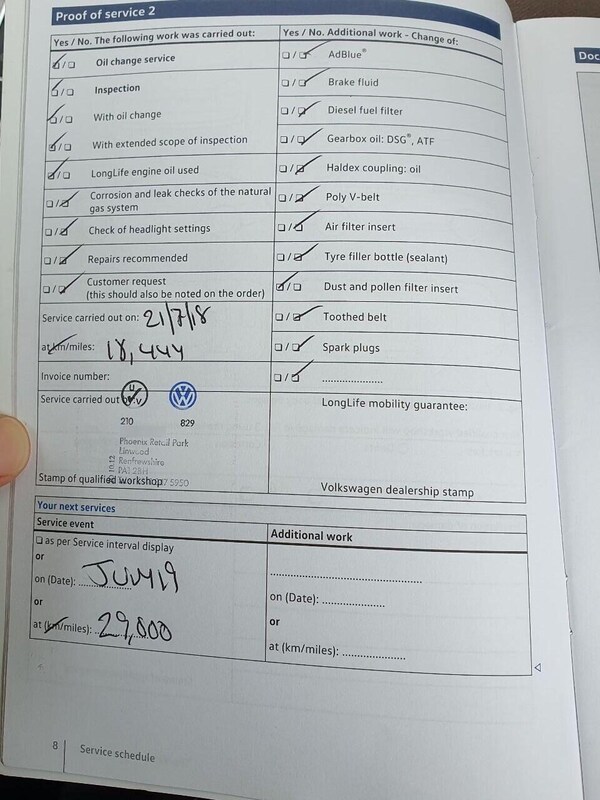 Proof of service 2
Yes / No. The following work was carried out:
☑/☐ Oil change service
☑/☐ Inspection
☑/☐ With oil change
☑/☐ With extended scope of inspection
☑/☐ LongLife engine oil used
☐/☑ Corrosion and leak checks of the natural
gas system
☐/☑ Check of headlight settings
☐/☑ Repairs recommended
☐/☑ Customer request
(this should also be noted on the order)
Service carried out on: 21/7/18
at km/miles: 18,444
Invoice number:
Service carried out
210 829
Phoenix Retail Park
Linwood
Renfrewshire
PA1 2BH
5950
Stamp of qualified workshop
Yes / No. Additional work - Change of:
☐/☑ AdBlue®
☐/☑ Brake fluid
☐/☑ Diesel fuel filter
☐/☑ Gearbox oil: DSG®, ATF
☐/☑ Haldex coupling: oil
☐/☑ Poly V-belt
☐/☑ Air filter insert
☐/☑ Tyre filler bottle (sealant)
☑/☐ Dust and pollen filter insert
☐/☑ Toothed belt
☐/☑ Spark plugs
☐/☑ .....................
LongLife mobility guarantee:
Volkswagen dealership stamp
Your next services
Service event
☐ as per Service interval display
or
on (Date): 
or
at (km/miles): 29,000
Additional work
.....................................................
on (Date): .....................
or
at (km/miles): .....................
8
Service schedule
Doc